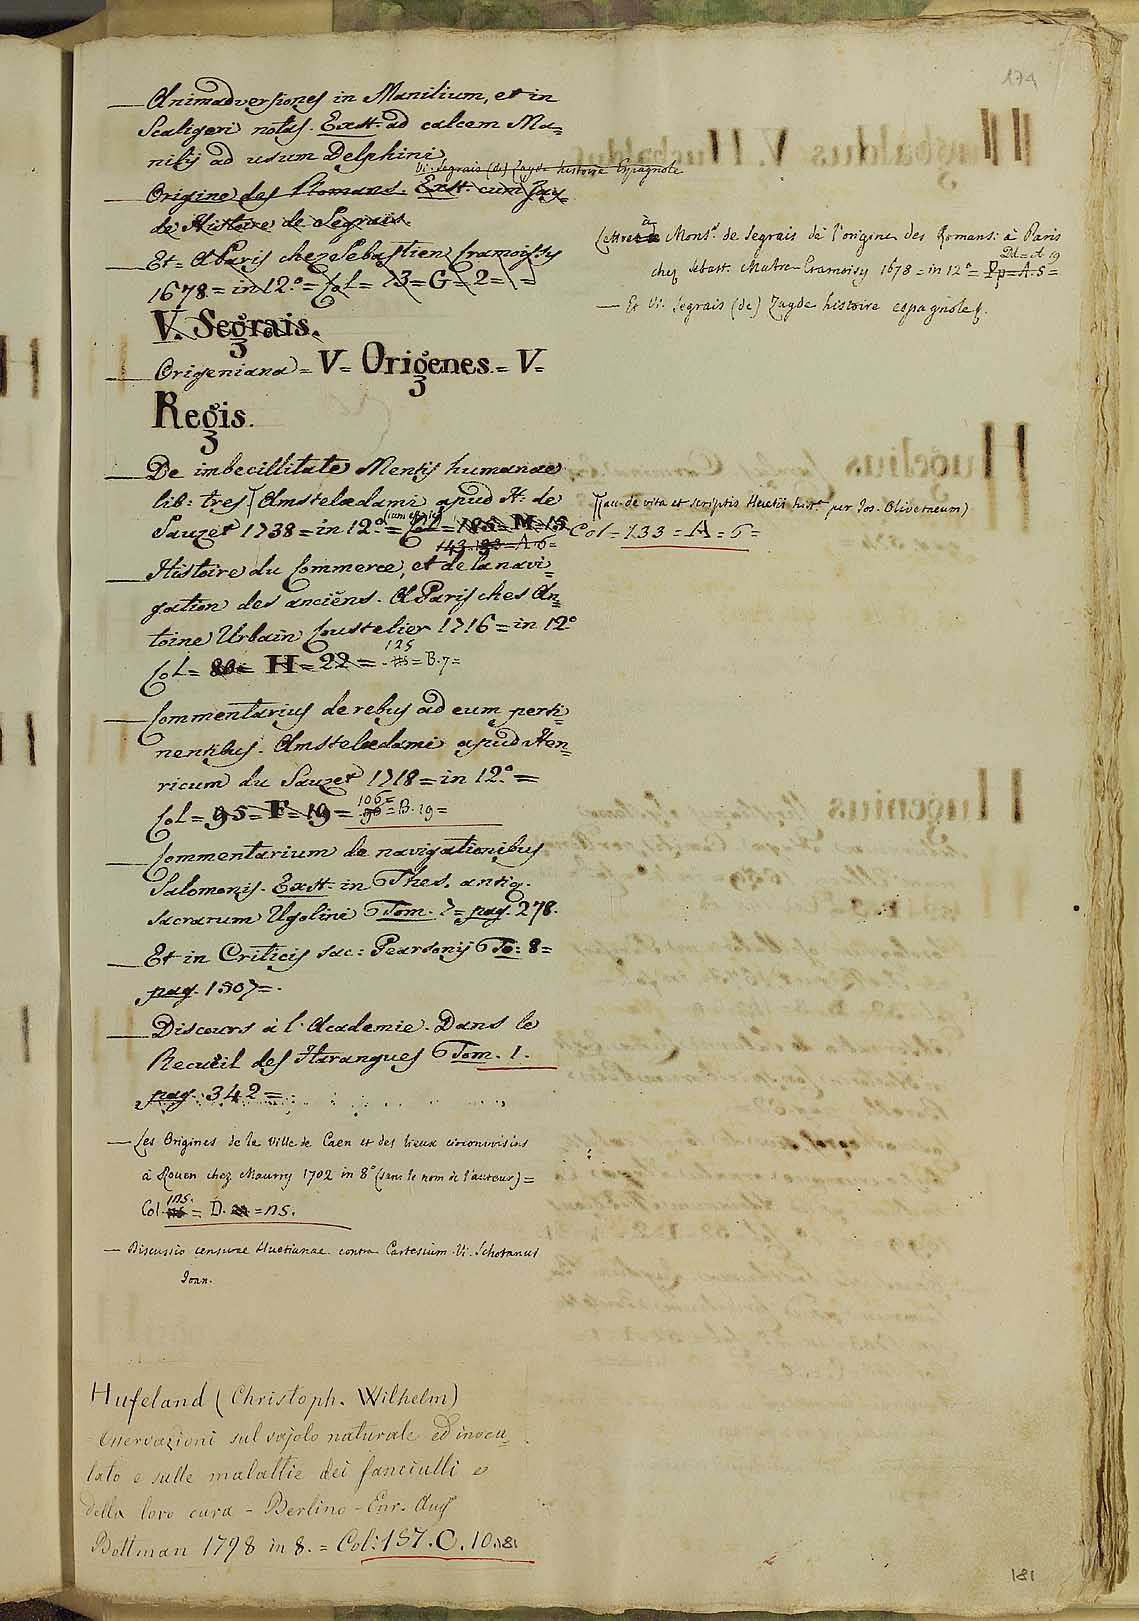 174
— Animadversiones in Manilium, et in
Scaligeri notas. Exst. ad calcem Ma=
nilij ad usum Delphini
Vi. Segrais (de) Zayde histoire Espagnole
— Origine des Romans. Exst. cum Zay=
de Histoire de Segrais.
— Et = A Paris chez Sebastien Cramoissy
1678 = in 12.° = Col = 73 = G = 2 =
V. Segrais.
— Origeniana = V = Origenes. = V =
Regis.
— De imbecillitate Mentis humanae
lib: tres [Amstelaedami apud H: de
Sauzet 1738 = in 12.° = Col = 185 = M = 15
143. 133 = A. 6 =
— Histoire du Commerce, et de la navi=
gation des anciens. A Paris ches An=
toine Urbain Coustelier 1716 = in 12.°
125
Col = 80 = H = 22 = 115 = B. 7 =
— Commentarius de rebus ad eum perti=
nentibus. Amstelaedami apud Hen=
ricum du Sauzet 1718 = in 12.° =
106 =
Col = 95 = F = 19 = 96 = B. 19 =
— Commentarium de navigationibus
Salomonis. Exst. in Thes. antiq.
sacrarum Ugolini Tom. 7 = pag. 278.
— Et in Criticis sac: Pearsonij To: 8 =
pag. 1307 =
— Discours à l'Academie. Dans le
Recueil des Harangues Tom. 1.
pag. 342 =
— Les Origines de la Ville de Caen et des lieux circonvoisins
à Rouen chez Maurry 1702 in 8.° (sans le nom de l'auteur) =
Col 115 = D. = ns.
— Discussio censurae Huetianae contra Cartesium. Vi. Schotanus
Joan.
Hufeland (Christoph. Wilhelm)
Osservazioni sul vajolo naturale ed inocu=
lato e sulle malattie dei fanciulli e
della loro cura - Berlino - Enr. Aug.
Bottman 1798 in 8. = Col: 157. C. 10. 181
à
Lettre de Mons.r de Segrais de l'origine des Romans: à Paris
Dd = A 19
chez Sebast. Mabre-Cramoisy 1678 = in 12.° = Pp = A. 5 =
— Et Vi. Segrais (de) Zayde histoire espagnole.
[(au. de vita et scriptis Huetii hist.a per Jos. Olivetneum)
Col = 133 = A = 6 =
181